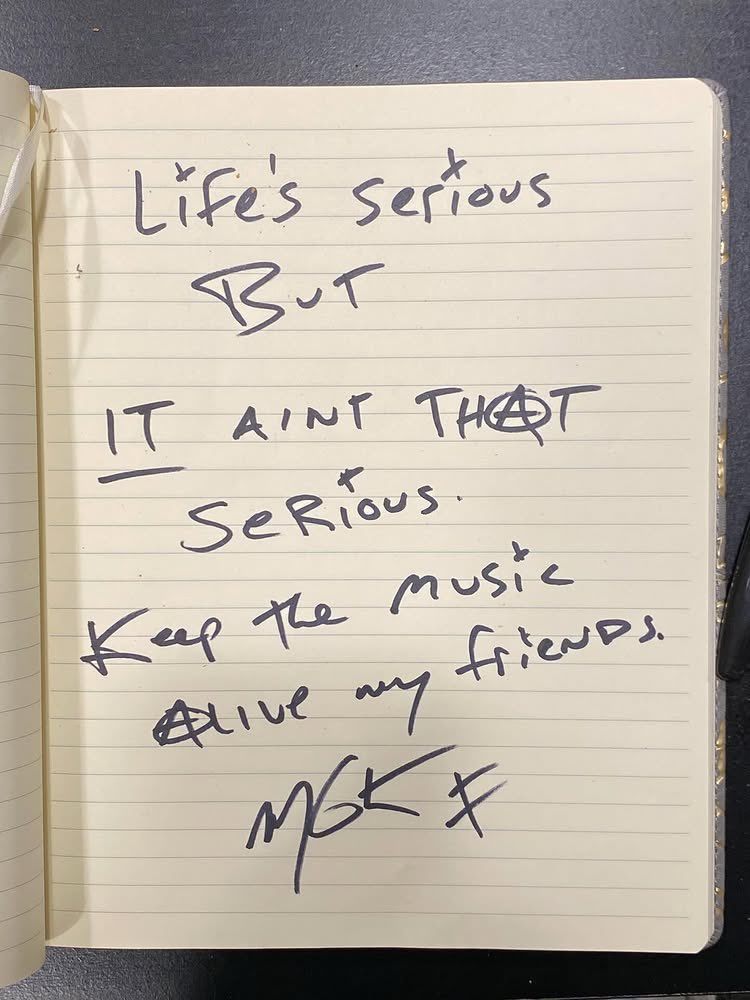 Life's serious
BuT
IT AINT THAT
SeRious.
Keep the music
Alive my friends.
MGK